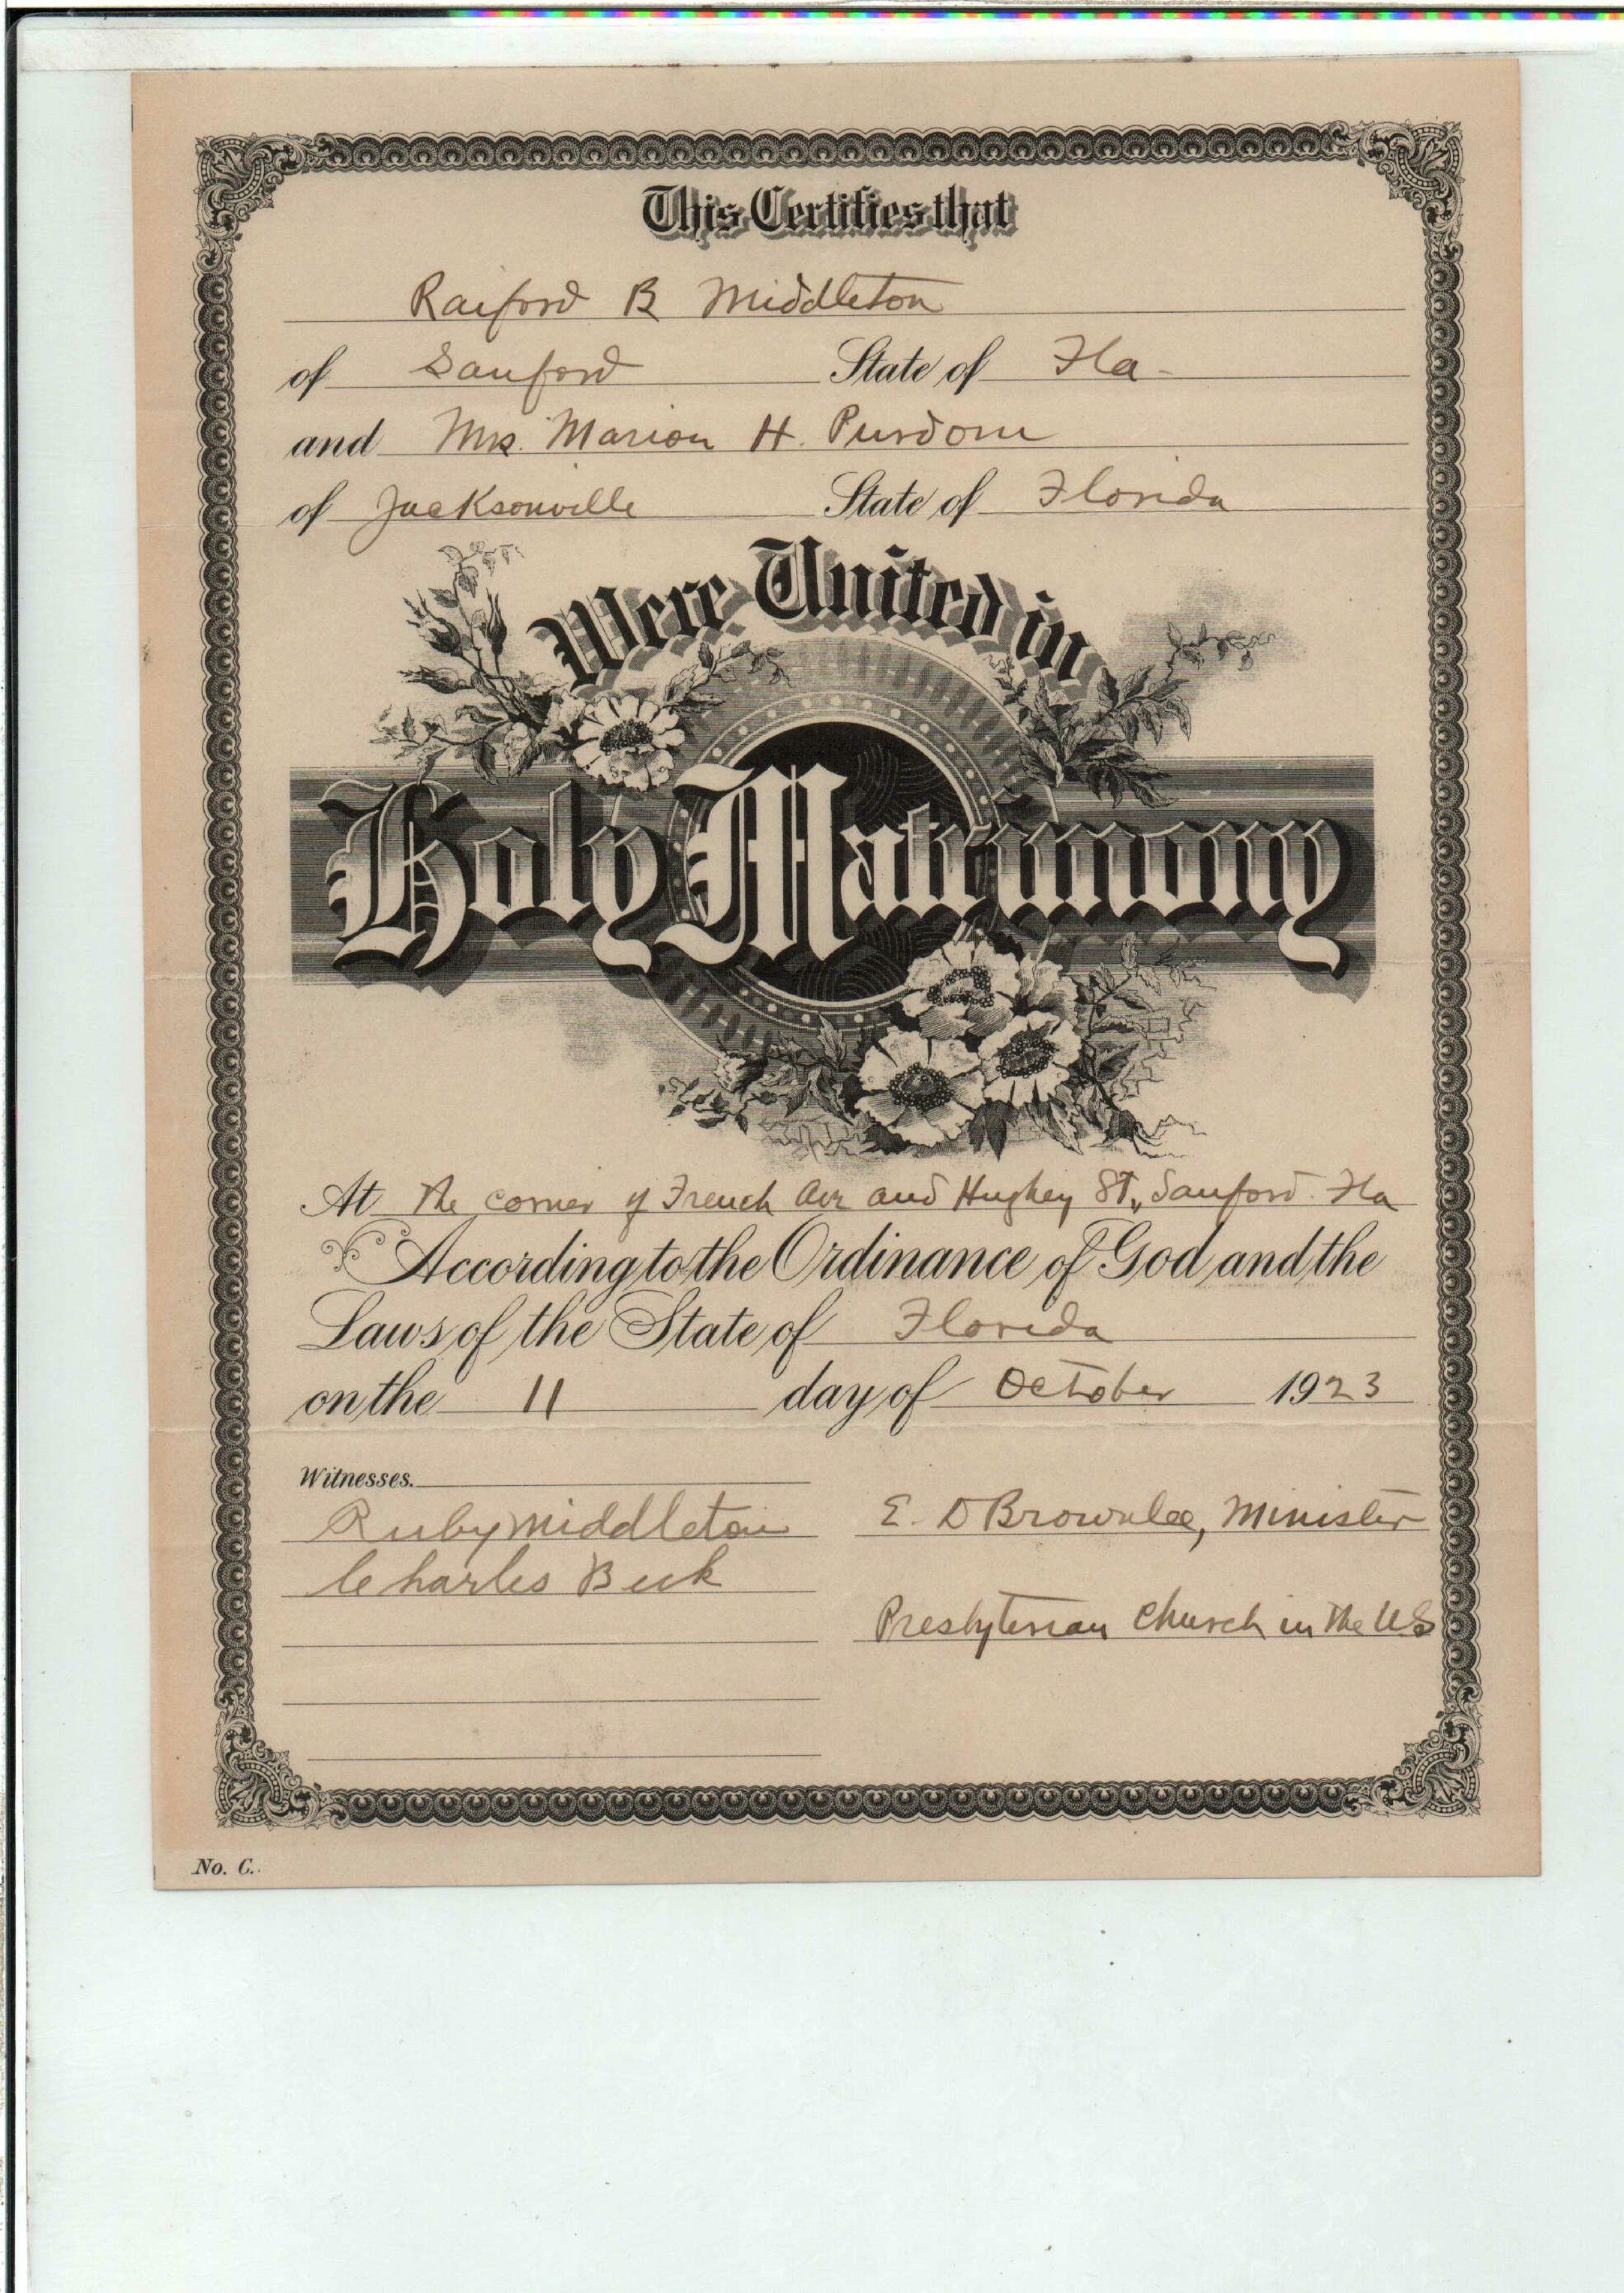 This Certifies that
Raiford B Middleton
of Sanford State of Fla-
and Mrs. Marion H. Purdom
of Jacksonville State of Florida
Were United in
Holy Matrimony
At the corner of French Ave and Hughey St., Sanford. Fla
According to the Ordinance of God and the
Laws of the State of Florida
on the 11 day of October 1923
Witnesses.
Ruby Middleton
Charles Beck
E. D Brownlee, Minister
Presbyterian Church in the U.S
No. C.